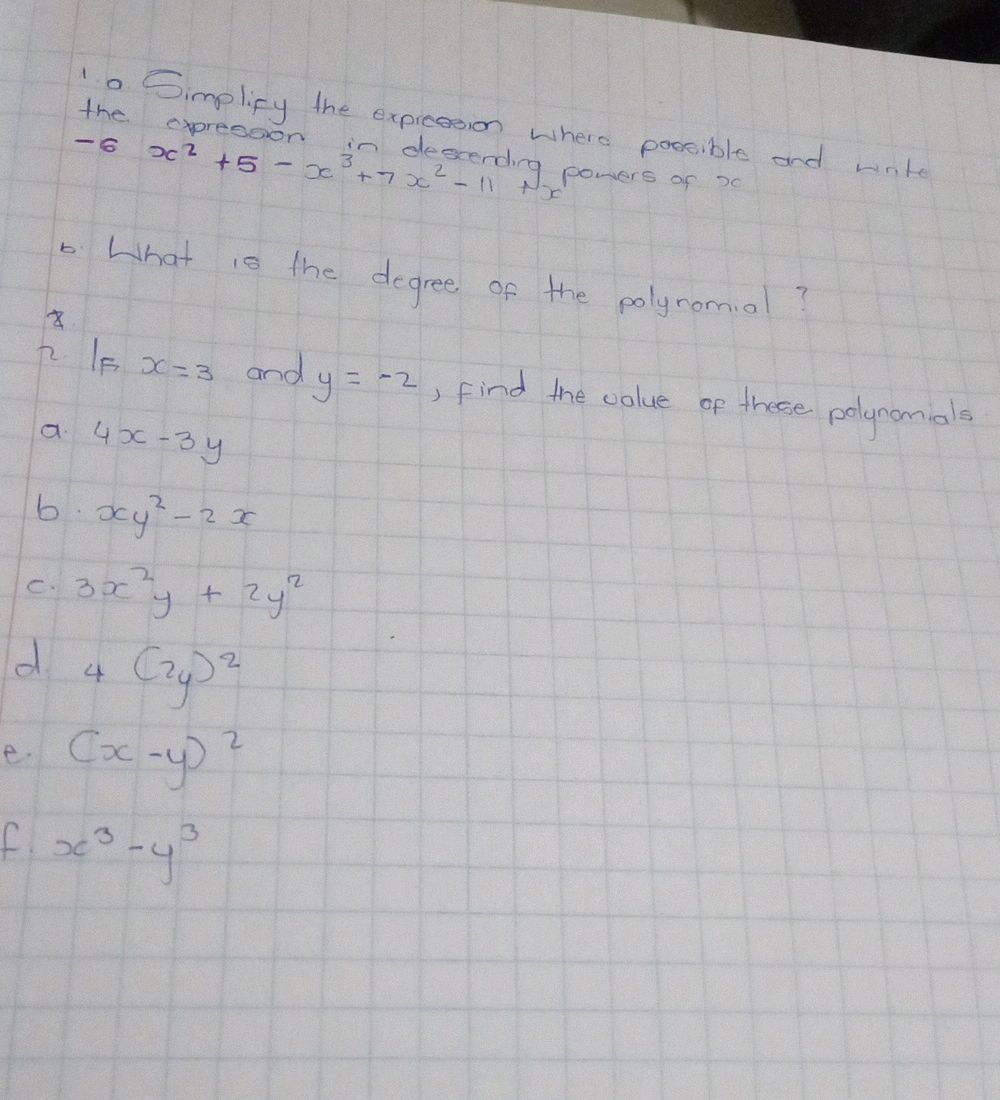 1. a Simplify the expression where possible and write
the expression in descending powers of x
-6 x² + 5 - x³ + 7x² - 11 + x
b. What is the degree of the polynomial ?
2. If x = 3 and y = -2, find the value of these polynomials
a. 4x - 3y
b. xy² - 2x
c. 3x²y + 2y²
d. 4 (2y)²
e. (x - y)²
f. x³ - y³